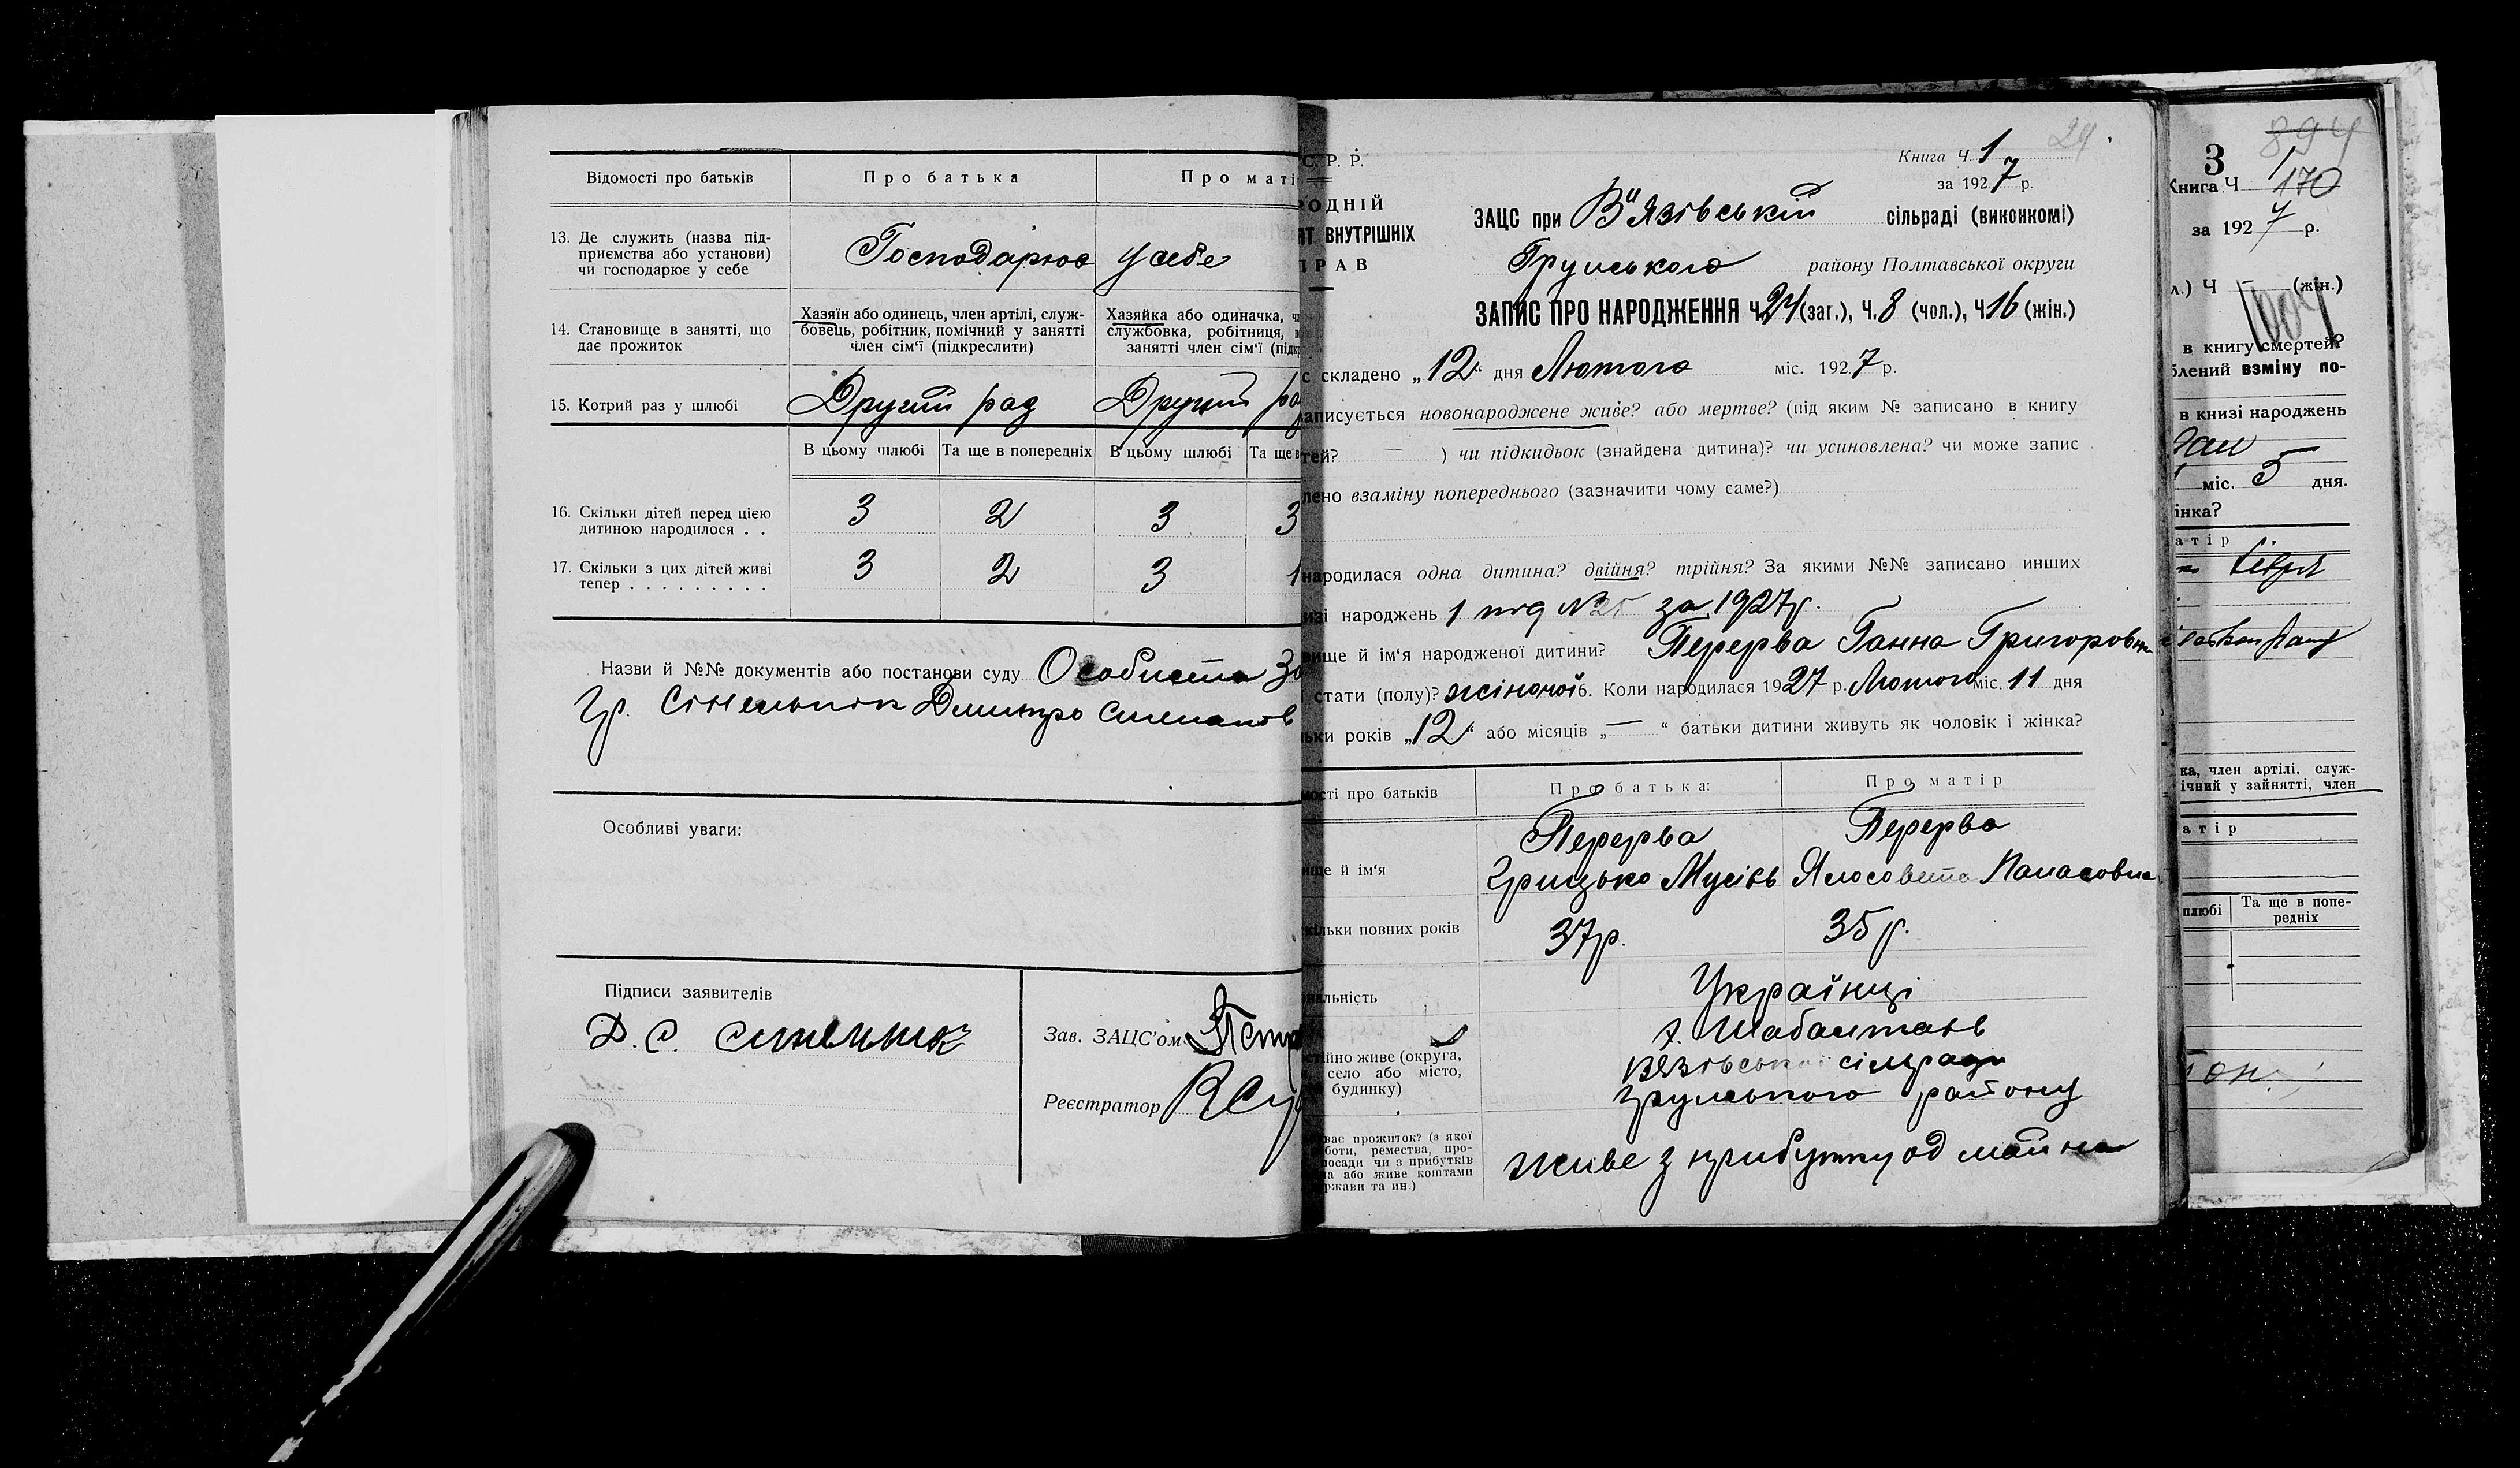 Відомості про батьків
Про батька
Про маті
13. Де служить (назва під-
приємства або установи)
чи господарює у себе
Господарює у себе
14. Становище в занятті, що
дає прожиток
Хазяїн або одинець, член артілі, служ-
бовець, робітник, помічний у занятті
член сім'ї (підкреслити)
Хазяйка або одиначка, ч
службовка, робітниця, п
занятті член сім'ї (підкр
15. Котрий раз у шлюбі
Другий раз
Другий ра
В цьому шлюбі
Та ще в попередніх
В цьому шлюбі
Та ще в
16. Скільки дітей перед цією
дитиною народилося . .
3 2 3 3
17. Скільки з цих дітей живі
тепер . . . . . . . . .
3 2 3 1
Назви й №№ документів або постанови суду Особиста за
Гр. Сінельник Дмитро Степанов
Особливі уваги:
Підписи заявителів
Д. С. Синельник
Зав. ЗАЦС'ом
Реєстратор
24.
С. Р. Р.
ОДНІЙ
АТ ВНУТРІШНІХ
ПРАВ
Книга Ч. 1
за 1927 р.
ЗАЦС при В"язівській сільраді (виконкомі)
Грунського району Полтавської округи
ЗАПИС ПРО НАРОДЖЕННЯ Ч. 24 (заг.), Ч. 8 (чол.), Ч 16 (жін.)
с складено „12" дня Лютого міс. 1927 р.
записується новонароджене живе? або мертве? (під яким № записано в книгу
тей? — ) чи підкидьок (знайдена дитина)? чи усиновлена? чи може запис
лено взаміну попереднього (зазначити чому саме?)
народилася одна дитина? двійня? трійня? За якими №№ записано инших
изі народжень 1 під №25 за 1927р.
вище й ім'я народженої дитини? Перерва Ганна Григоровна
стати (полу)? жіночої 6. Коли народилася 1927 р. Лютого міс. 11 дня
ьки років „12" або місяців „—" батьки дитини живуть як чоловік і жінка?
мості про батьків
Про батька:
Про матір
ище й ім'я
Перерва
Грицько Мусієв
Перерва
Ялосовета Панасовна
кільки повних років
37р.
35р.
нальність
Українці
стійно живе (округа,
село або місто,
будинку)
х. Шабалтаєв
Вязівської сільради
Грунського району
ває прожиток? (з якої
боти, ремества, про-
посади чи з прибутків
на або живе коштами
ржави та ин.)
живе з прибутку од майна
894
3
Книга Ч 1
170
за 1927 р.
л.) Ч (жін.)
1004
в книгу смертей?
блений взміну по-
в книзі народжень
міс. 5 дня.
інка?
атір
ка, член артілі, служ-
ічний у зайнятті, член
атір
шлюбі
Та ще в попе-
редніх